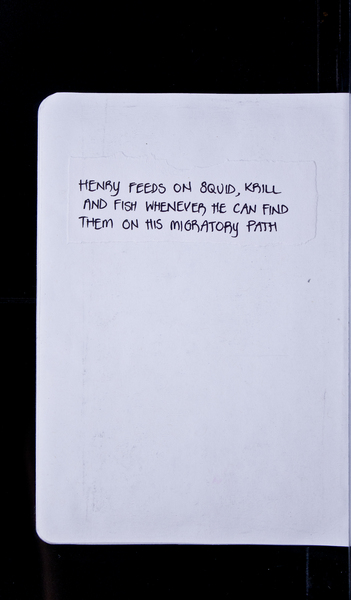 HENRY FEEDS ON SQUID, KRILL
AND FISH WHENEVER HE CAN FIND
THEM ON HIS MIGRATORY PATH